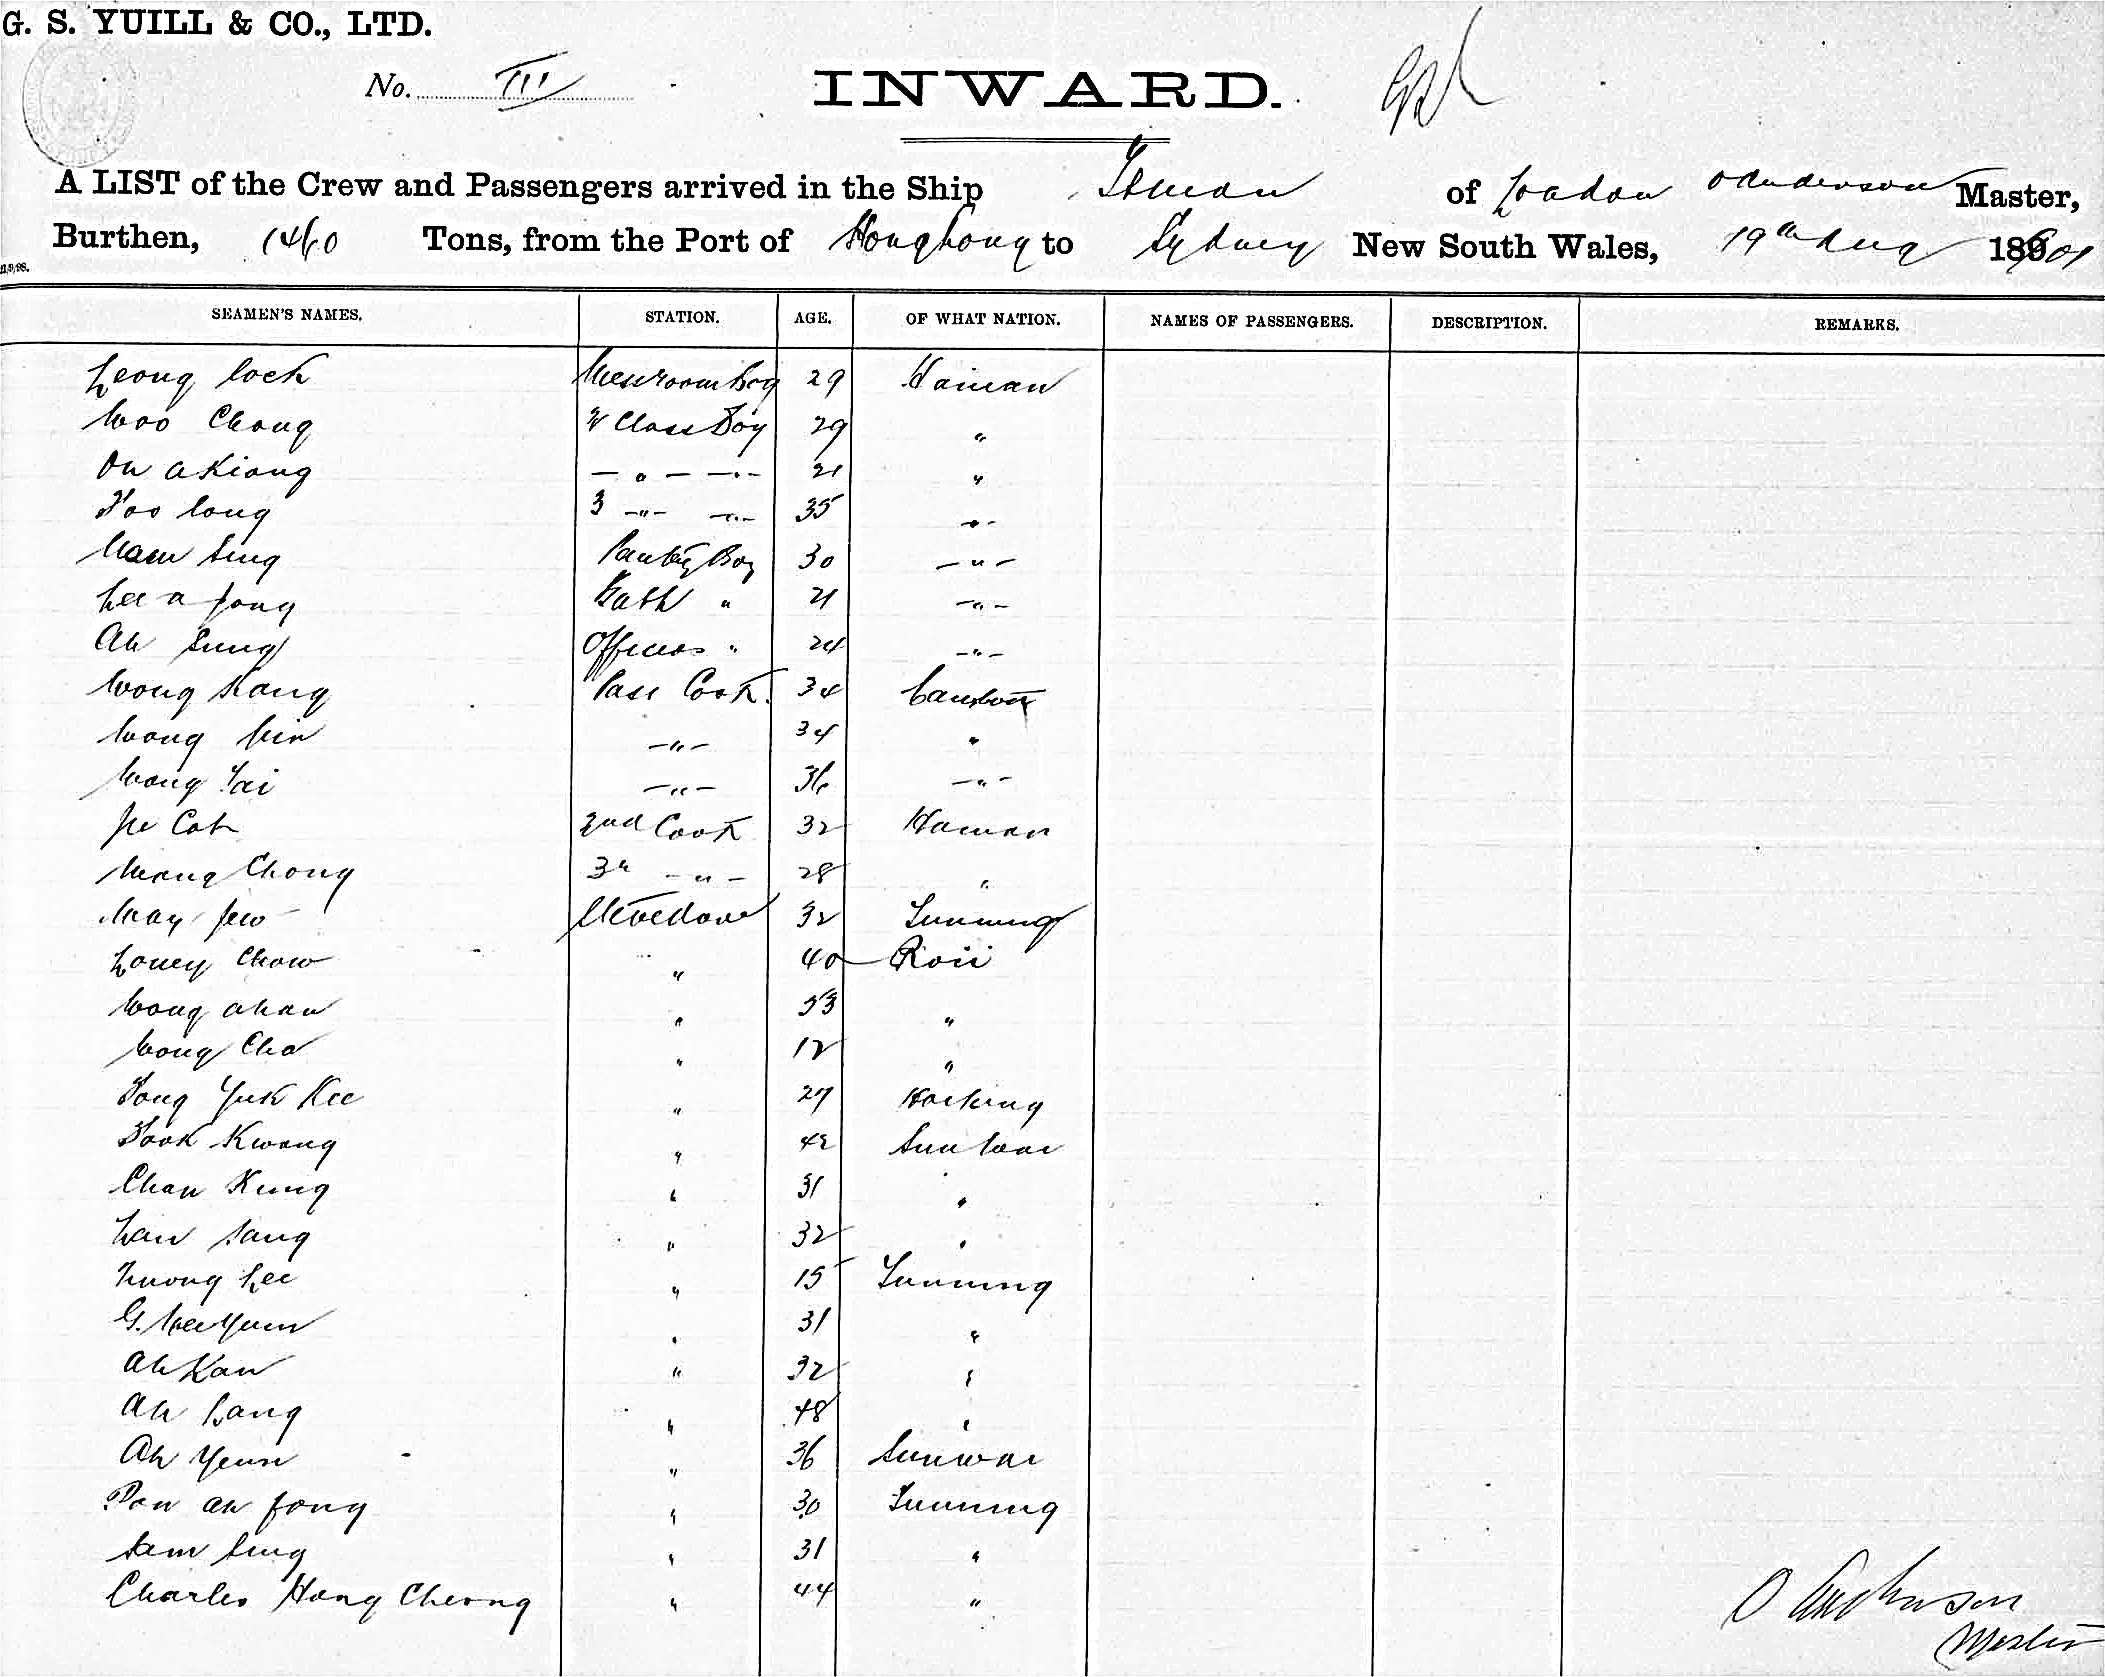 G. S. YUILL & CO., LTD.
No. III INWARD.
A LIST of the Crew and Passengers arrived in the Ship of London O Anderson Master,
Burthen, 1460 Tons, from the Port of Hongkong to Sydney New South Wales, 19th Aug 1901
SEAMEN'S NAMES. STATION. AGE. OF WHAT NATION. NAMES OF PASSENGERS. DESCRIPTION. REMARKS.
Leong Lock Messroom Boy 29 Hainan
Woo Chong Class Boy 29 "
On a Kiong — " — — " — 21 "
Foo Long 3 — " — — " — 35 — " —
Mam Sing Pantry Boy 30 — " —
Lee a Fong Bath " 21 — " —
Ah Sung Officers " 24 — " —
Wong Kang Pass Cook. 34 Canton
Wong — " — 34 "
Wong Tai — " — 36 — " —
2nd Cook 32 Hainan
Chong 3rd — " — 28 "
May Jew Stevedore 32 Sunning
Chow " 40
Wong ahan " 33 "
Wong Cha " 12 "
Fong Yuk Kee " 27
Fook Kwong " 42 Sunwai
Chan Kung " 31 "
Lan Sang " 32 "
Lee " 15 Sunning
G. Wee Yuen " 31 "
Ah Kan " 32 "
Ah Lang " 48 "
Ah Yeun " 36 Sunwai
Pon ah Fong " 30 Sunning
Sam Sing " 31 "
Charles Hong Cheong " 44 "
O Anderson
Master